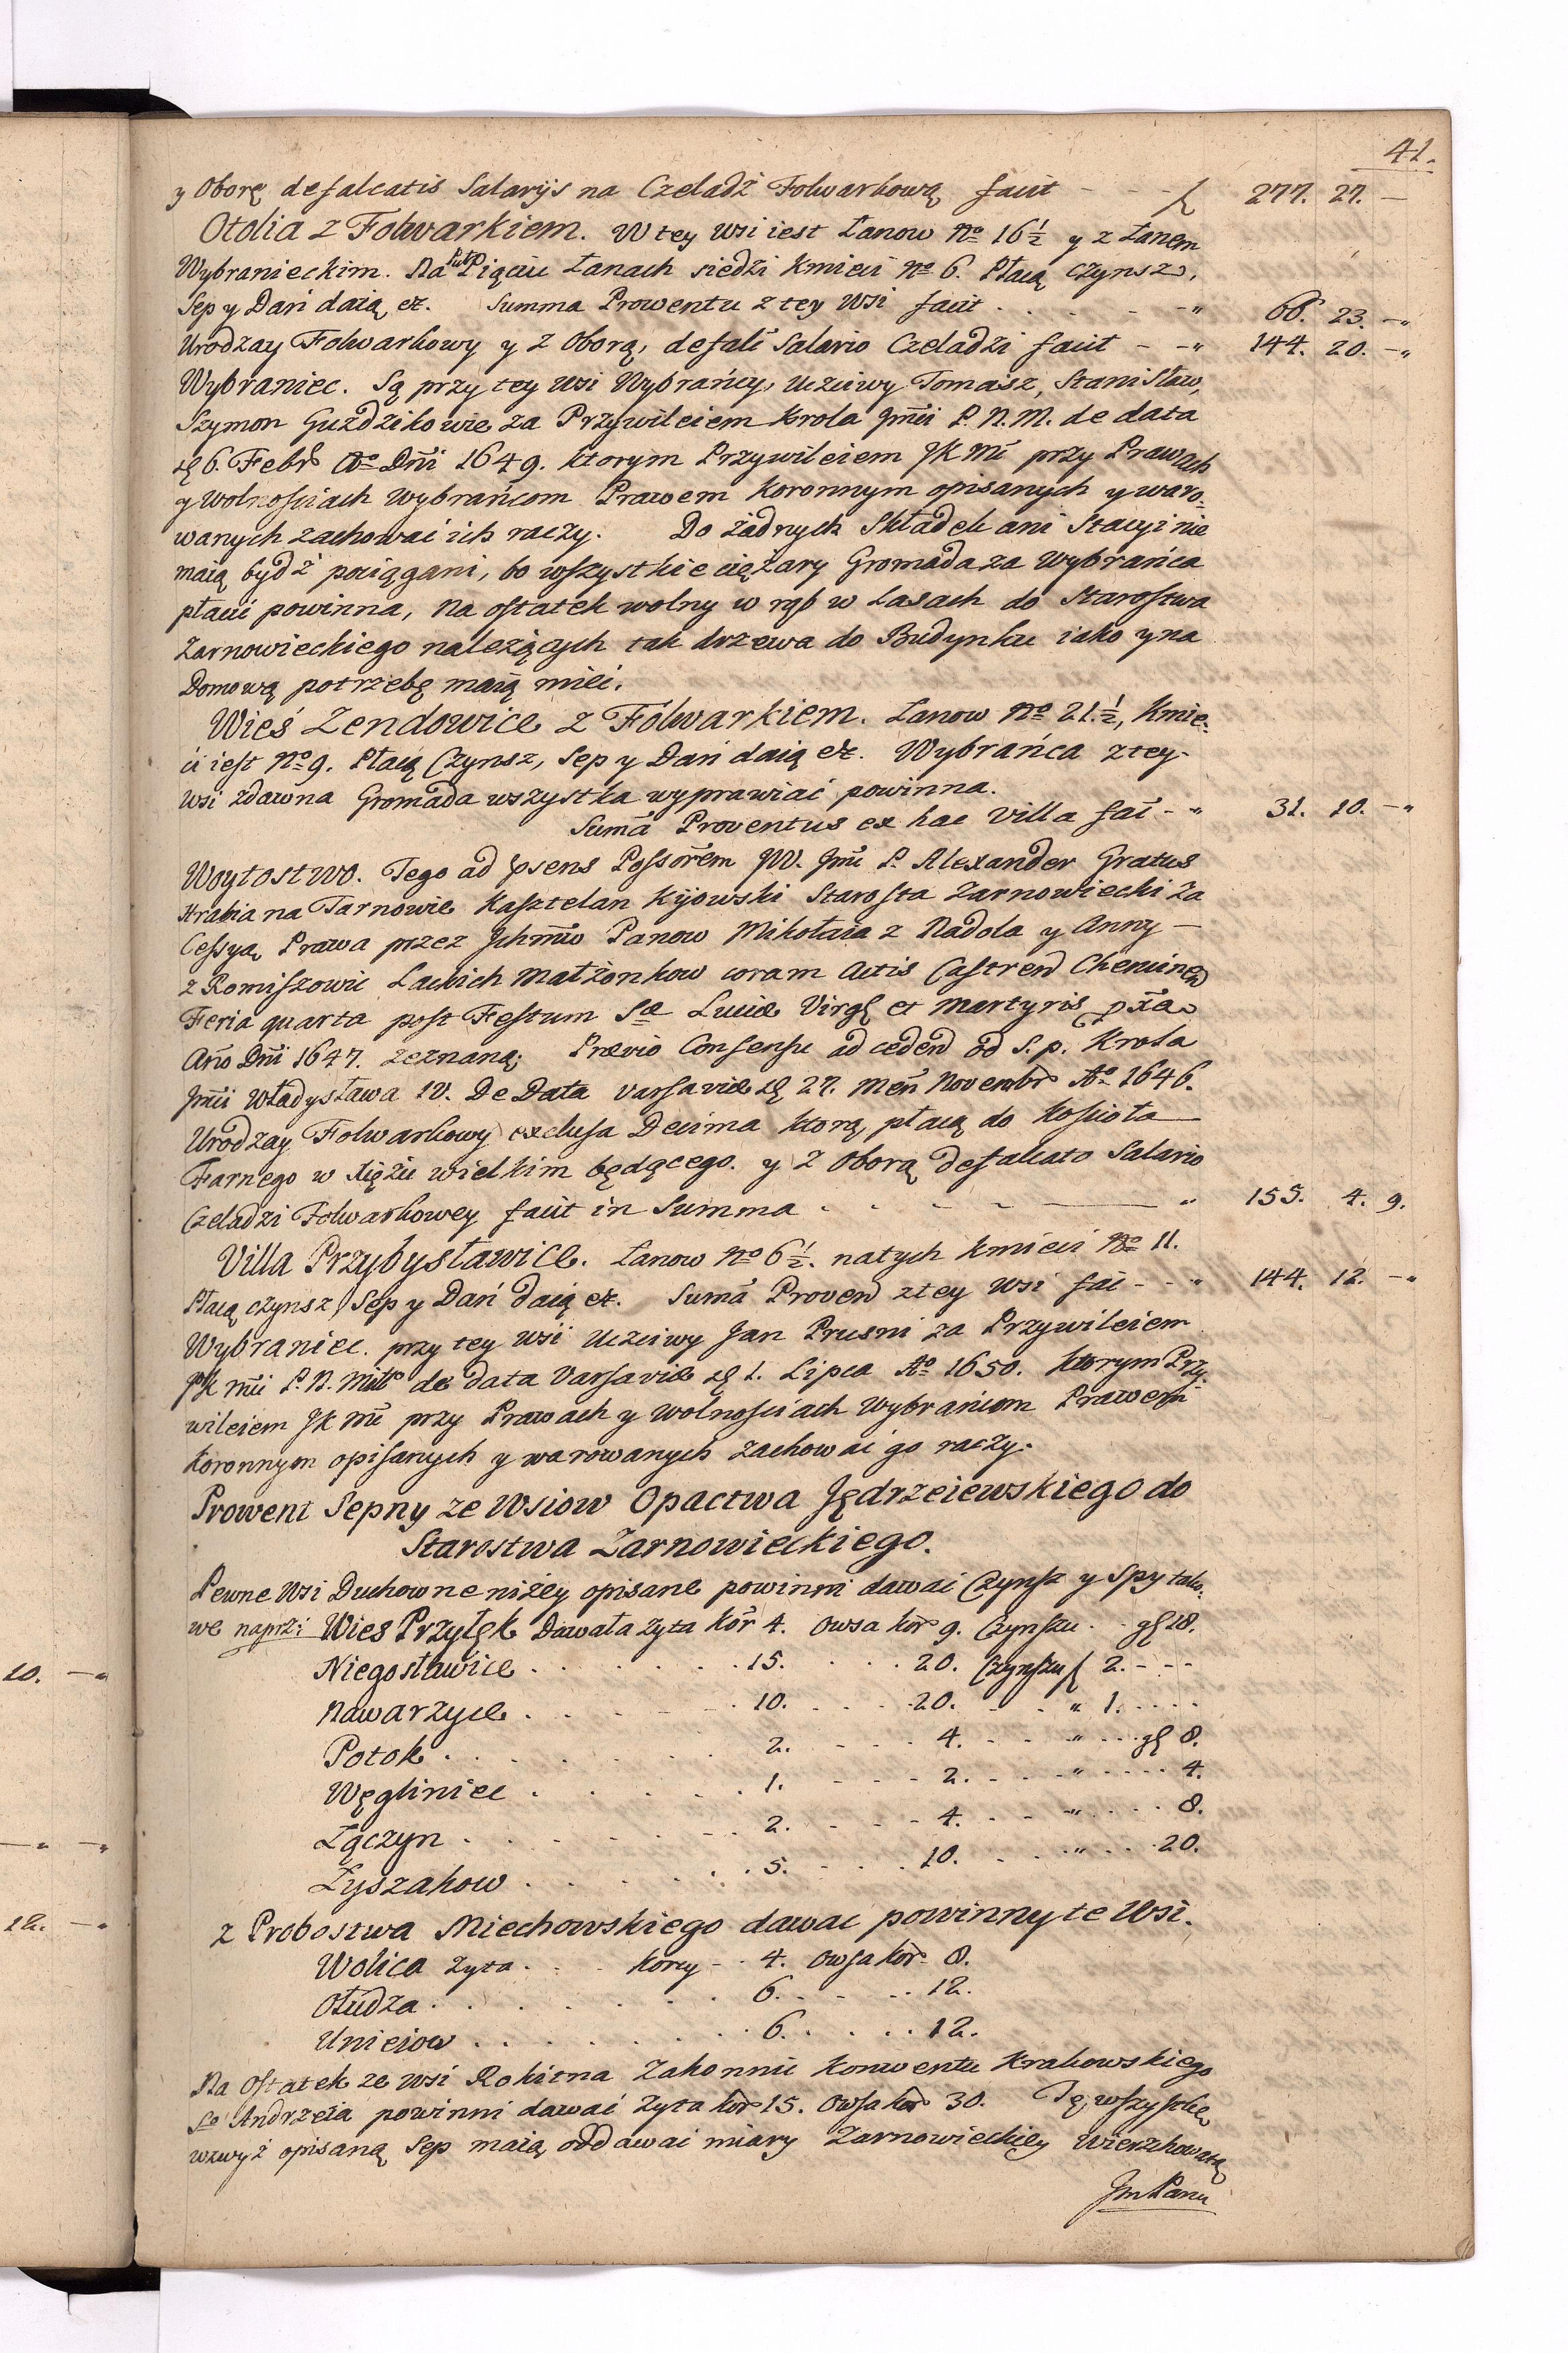 41.
y Oborę defalcatis Salarijs na Czeladź Folwarkową facit - - - f 277. 27. —
Otolia z Folwarkiem. W tey wsi iest Łanow No 16 1/2 y z Łanem
Wybranieckim. Na Puł Pięciu Łanach siedzi Kmieci No 6. Płacą czynsz,
Sep y Dań daią etc. Summa Prowentu z tey Wsi facit . . . - - " 68. 23. —"
Urodzay Folwarkowy y z Oborą, defalc Salario Czeladzi facit - - " 144. 20. —"
Wybraniec. Są przy tey wsi Wybrańcy, Uczciwy Tomasz, Stanisław,
Szymon Guździkowie za Przywileiem Krola Jmci P. N. M. de data
6. Febr Ao Dni 1649. ktorym Przywileiem JK Mć przy Prawach
y wolnościach Wybrańcom Prawem Koronnym opisanych y waro-
wanych zachować ich raczy. Do żadnych Składek ani Stacyi nie
maią bydź pociągani, bo wszystkie ciężary Gromada za Wybrańca
płacić powinna, na ostatek wolny w rąb w Lasach do Starostwa
Zarnowieckiego należących tak drzewa do Budynku iako y na
Domową potrzebę maią mieć.
Wieś Zendowice z Folwarkiem. Łanow No 21. 1/2, Kmie-
ci iest No 9. Płacą Czynsz, Sep y Dań daią etc. Wybrańca z tey
wsi zdawna Gromada wszystka wyprawiać powinna.
Suma Proventus ex hac Villa fac - " 31. 10. —"
Woytostwo. Tego ad psens Possorem JW. Jmć P. Alexander Gratus
Hrabia na Tarnowie Kasztelan Kijowski Starosta Zarnowiecki za
Cessyą Prawa przez Ichmw Panow Mikołaia z Nadola y Anny —
z Romiszowic Lackich Małżonkow coram Actis Castren Chencinen
Feria quarta post Festum Sae Luciae Virg et Martyris pxa
Ano Dni 1647. zeznaną; Praevio Consensu ad ceden od S. p. Krola
Jmci Władysława IV. De Data Varsaviae 27. Men Novembr Ao 1646.
Urodzay Folwarkowy exclusa Decima ktorą płacą do Kościoła
Farnego w Xiężu wielkim będącego. y z Oborą defalcato Salario
Czeladzi Folwarkowey facit in Summa . . - - — " 155. 4. 9.
Villa Przybysławice. Łanow No 6 1/2. na tych Kmieci No 11.
Płacą czynsz, Sep y Dań daią etc. Suma Proven z tey Wsi fac - - " 144. 12. —"
Wybraniec. przy tey wsi Uczciwy Jan Prusni za Przywileiem
JK Mci P. N. Mił de data Varsaviae 1. Lipca Ao 1650. ktorym Przy-
wileiem JK Mć przy Prawach y wolnościach Wybrańcom Prawem
Koronnym opisanych y warowanych zachować go raczy.
Prowent Sepny ze Wsiow Opactwa Jędrzeiewskiego do
Starostwa Zarnowieckiego.
Pewne Wsi Duchowne niżey opisane powinni dawać Czynsz y Spy tako-
we naprz: Wies Przyłęk Dawała Żyta Kor 4. Owsa Kor 9. Czynszu . . gł 18.
Niegosławice . . . . . . . 15. . . . 20. Czynszu f 2. - - -
Nawarzyce . . . . . . . 10. . . . 20. - . " 1. . . . .
Potok . . . . . . . 2. - . . . 4. - . " . . . gł 8.
Węgliniec . . . . . . 1. - - - 2. - . " . . . . 4.
Łączyn . . . . . . . 2. - - - 4. . - " . . . 8.
Łyszakow . . . . . . . 5. - . . 10. . . " . . . 20.
z Probostwa Miechowskiego dawac powinny te Wsi.
Wolica Żyta . . . Korcy - . 4. Owsa Kor 8.
Ołudza . . . . . . . 6. . . . . 12.
Unieiow . . . . . . . 6. . . . . 12.
Na Ostatek ze wsi Rokitna Zakonnic Konwentu Krakowskiego
So Andrzeia powinni dawać Żyta Kor 15. Owsa Kor 30. Tę wszystkę
wzwyż opisaną Sep maią oddawać miary Zarnowieckiey Wierzchowatą
Jm Panu
10. —"
—" —"
12. —"